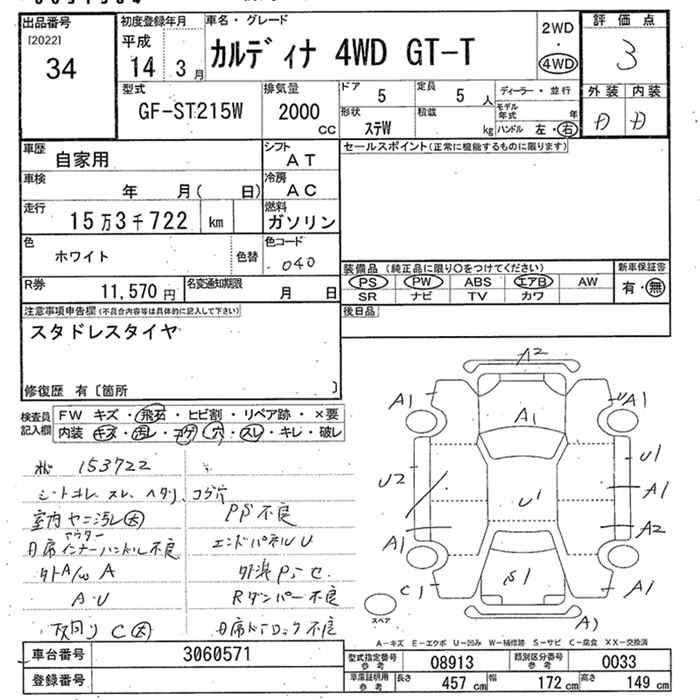 出品番号
[2022]
34
初度登録年月
平成
14年 3月
車名・グレード
カルディナ 4WD GT-T
2WD
・
4WD
評価点
3
外装 内装
D D
型式
GF-ST215W
排気量
2000 cc
ドア
5
定員
5 人
形状
ステW
積載
kg
ディーラー・並行
モデル年式 年
ハンドル 左・右
車歴
自家用
シフト
AT
車検
年 月( 日)
冷房
AC
走行
15万3千722 km
燃料
ガソリン
色
ホワイト
色替
色コード
040
R券
11,570円
名変通知期限
月 日
セールスポイント(正常に機能するものに限ります)
装備品(純正品に限り○をつけてください)
PS PW ABS エアB AW
SR ナビ TV カワ
新車保証書
有・無
後日品
注意事項申告欄(不具合内容等は具体的に記入して下さい)
スタドレスタイヤ
修復歴 有〔箇所 〕
検査員記入欄
FW キズ・飛石・ヒビ割・リペア跡・×要
内装 キズ・汚し・コゲ・穴・スレ・キレ・破し
153722
シートヨレ、スレ、ヘタリ、コゲ穴
室内ヤニ汚し大
PS不良
アウター
インナーハンドル不良
エンドパネルU
外A/W A
A・U
Rダンパー不良
下回り C大
ロック不良
A2
A1
A1
A1
U2
U1
U1
A1
A1
A2
C1
S1
A1
A1
スペア
A-キズ E-エクボ U-凹み W-補修跡 S-サビ C-腐食 XX-交換済
車台番号
3060571
登録番号
型式指定番号 参考
08913
類別区分番号 参考
0033
車庫証明用 参考
長さ 457 cm
幅 172 cm
高さ 149 cm